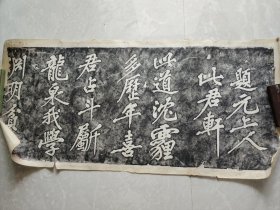 題元上人
此君軒
此道沈霾
多歷年喜
君占斗斸
龍泉我學
淵明貧